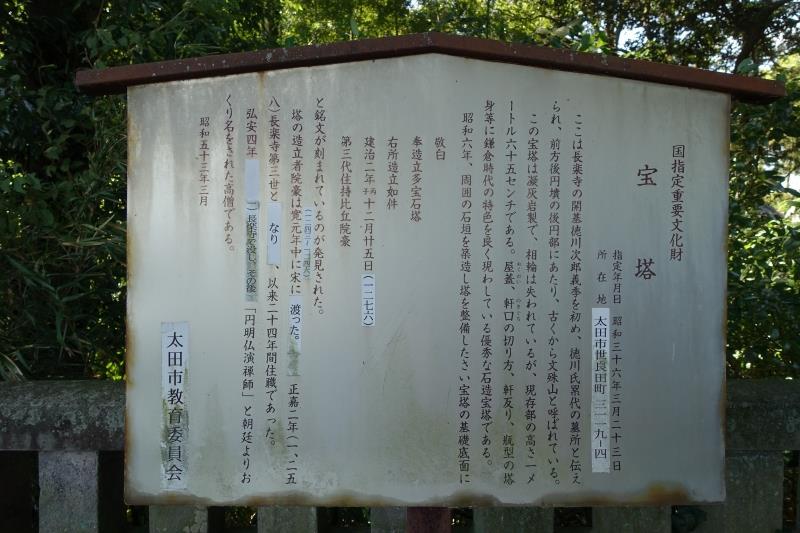 国指定重要文化財
宝塔
指定年月日 昭和三十六年三月二十三日
所在地 太田市世良田町三一一九-四
ここは長楽寺の開基徳川次郎義季を初め、徳川氏累代の墓所と伝え
られ、前方後円墳の後円部にあたり、古くから文殊山と呼ばれている。
この宝塔は凝灰岩製で、相輪は失われているが、現存部の高さ一メ
ートル六十五センチである。屋蓋、軒口の切り方、軒反り、瓶型の塔
身等に鎌倉時代の特色を良く現わしている優秀な石造宝塔である。
昭和六年、周囲の石垣を築造し塔を整備したさい宝塔の基礎底面に
敬白
奉造立多宝石塔
右所造立如件
建治二年丙子十二月廿五日(一二七六)
第三代住持比丘院豪
と銘文が刻まれているのが発見された。
塔の造立者院豪は寛元年中に宋に渡った。正嘉二年(一、二五
(一二四三~一二四六)
八)長楽寺第三世となり、以来二十四年間住職であった。
弘安四年 長楽寺で没し、その後「円明仏演禅師」と朝廷よりお
くり名をされた高僧である。
昭和五十三年三月
太田市教育委員会